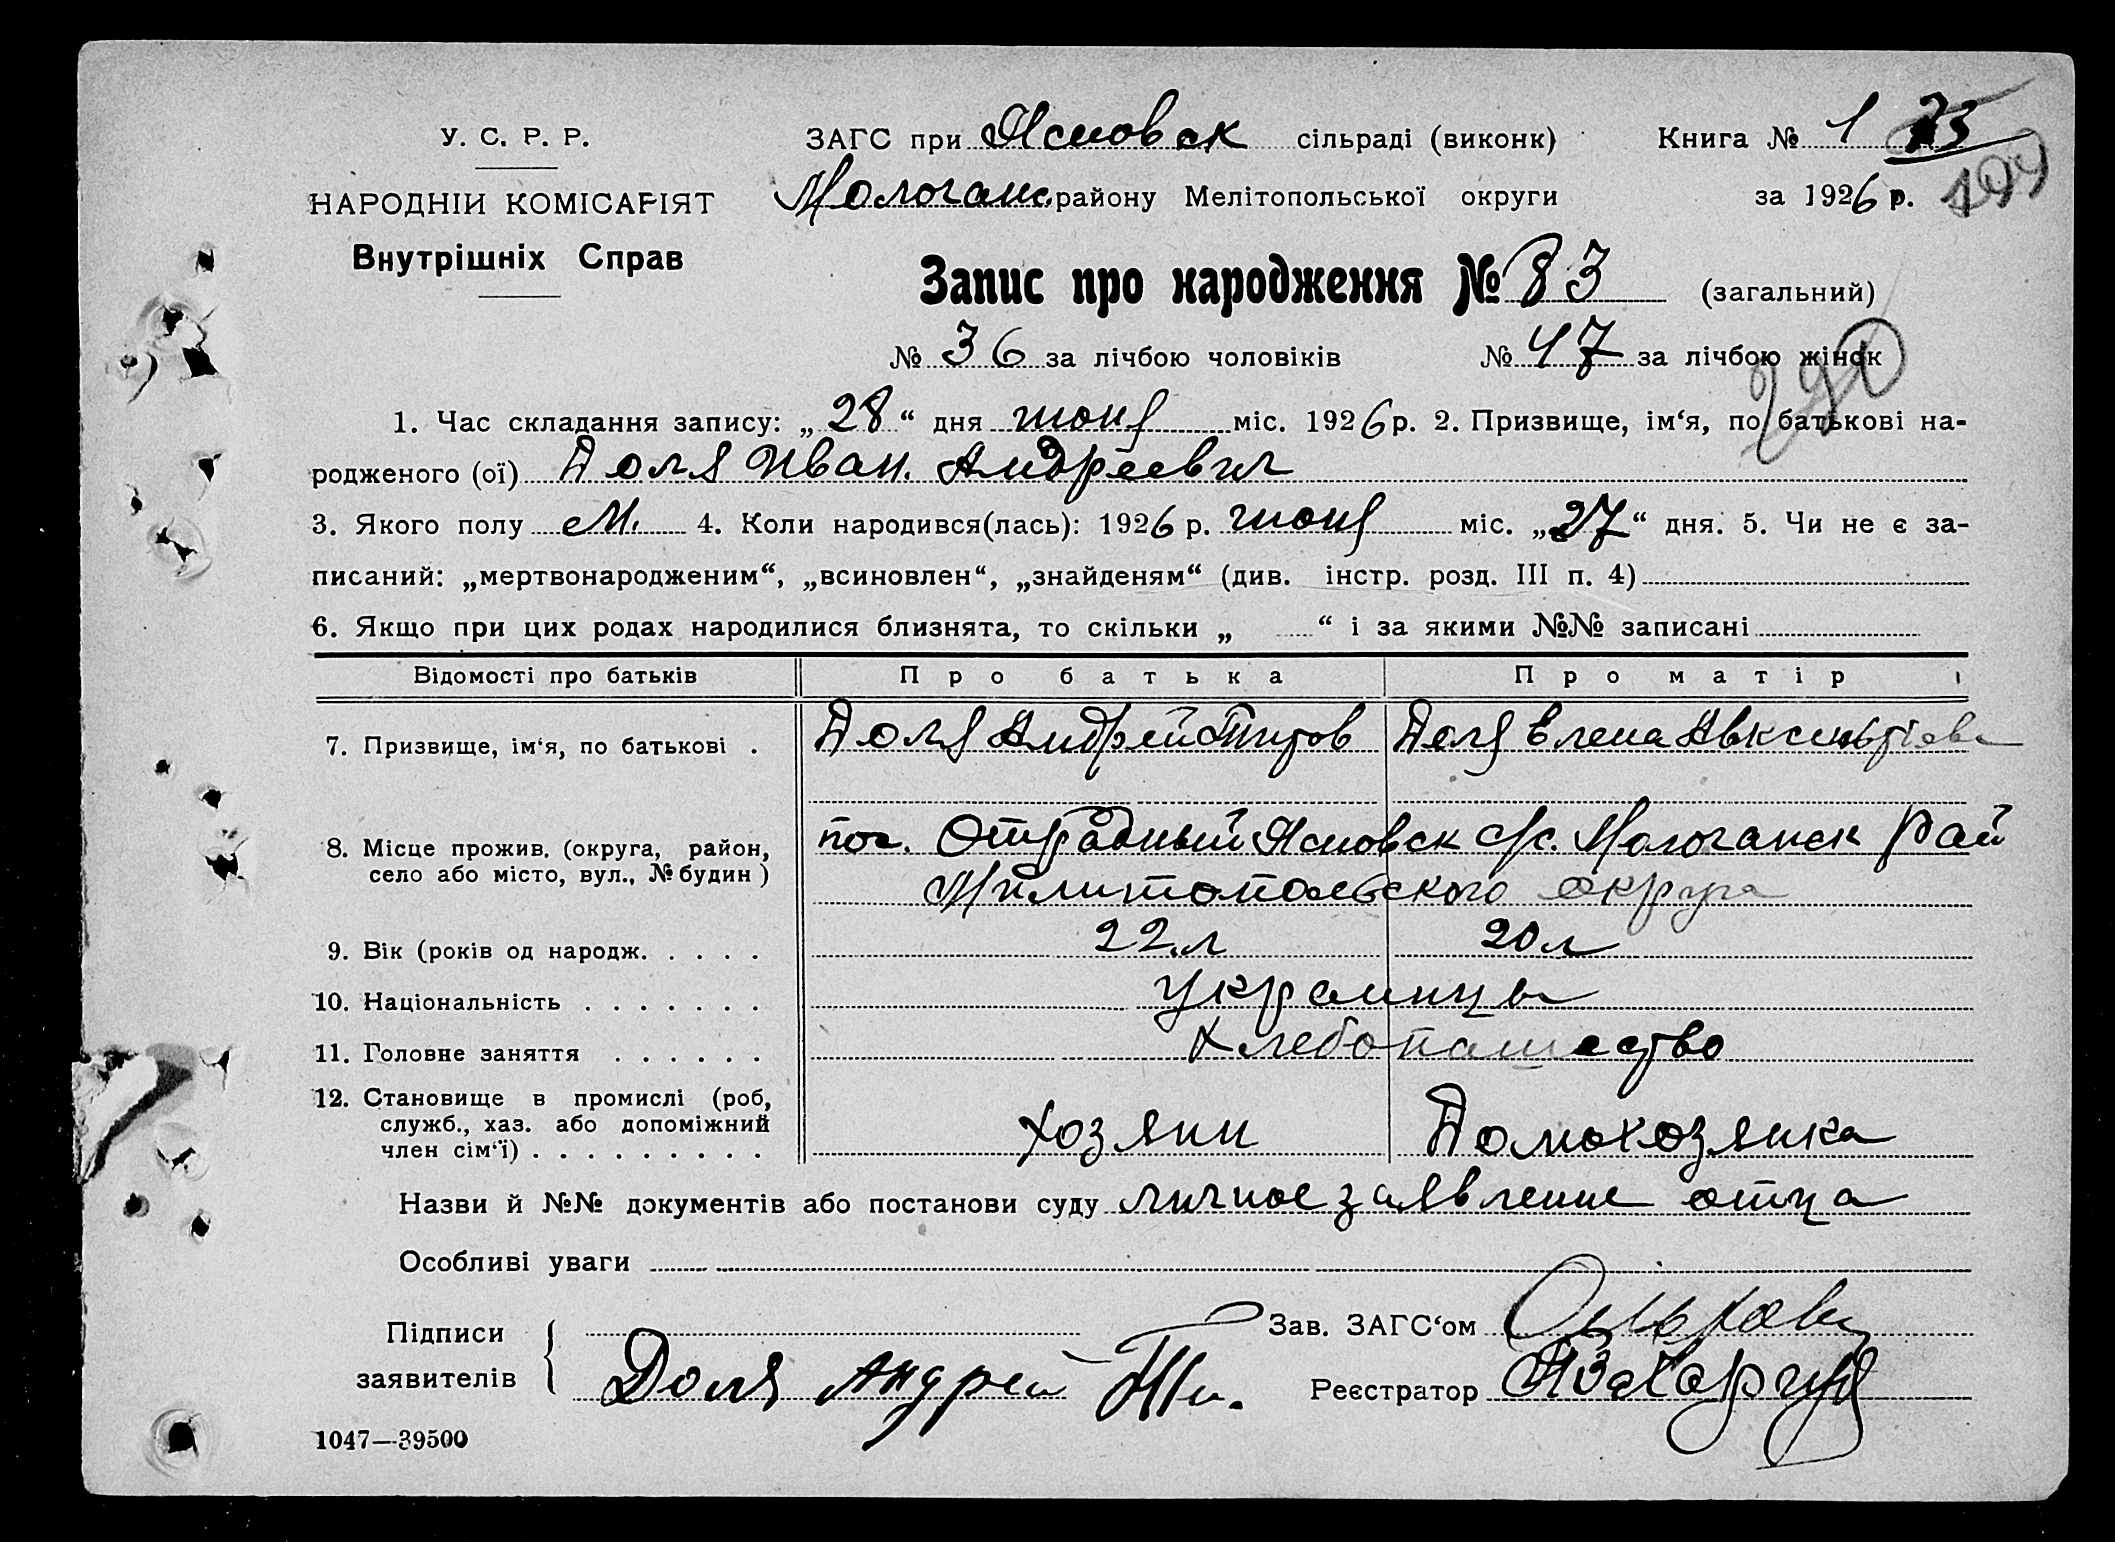 У. С. Р. Р.
НАРОДНІЙ КОМІСАРІЯТ
Внутрішніх Справ
ЗАГС при Ясновск сільраді (виконк)
Мологанс. району Мелітопольської округи
Книга № 1 73
за 1926 р. 199
Запис про народження № 83 (загальний)
№ 36 за лічбою чоловіків № 47 за лічбою жінок
1. Час складання запису: „28“ дня июня міс. 1926 р. 2. Призвище, ім‘я, по батькові на-
родженого (ої) Доля Иван. Андреевич
3. Якого полу М. 4. Коли народився(лась): 1926 р. июня міс. „27“ дня. 5. Чи не є за-
писаний: „мертвонародженим“, „всиновлен“, „знайденям“ (див. інстр. розд. III п. 4)
6. Якщо при цих родах народилися близнята, то скільки „ “ і за якими №№ записані
Відомості про батьків Про батька Про матір
7. Призвище, ім‘я, по батькові . Доля Андрей Титов Доля Елена Авксентиева
8. Місце прожив. (округа, район,
село або місто, вул., № будин)
пос. Отрадный Ясновск с/с. Мологанск рай
Милитопольского округа
9. Вік (років од народж. . . . . 22 л 20 л
10. Національність . . . . . . . украинцы
11. Головне заняття . . . . . . Хлебопашество
12. Становище в промислі (роб,
служб., хаз. або допоміжний
член сім‘ї) . . . . . . . . . хозяин Домохозяика
Назви й №№ документів або постанови суду личное заявление отца
Особливі уваги
Підписи
заявителів
Доля Андрей Ти.
Зав. ЗАГС‘ом
Реєстратор
1047—39500